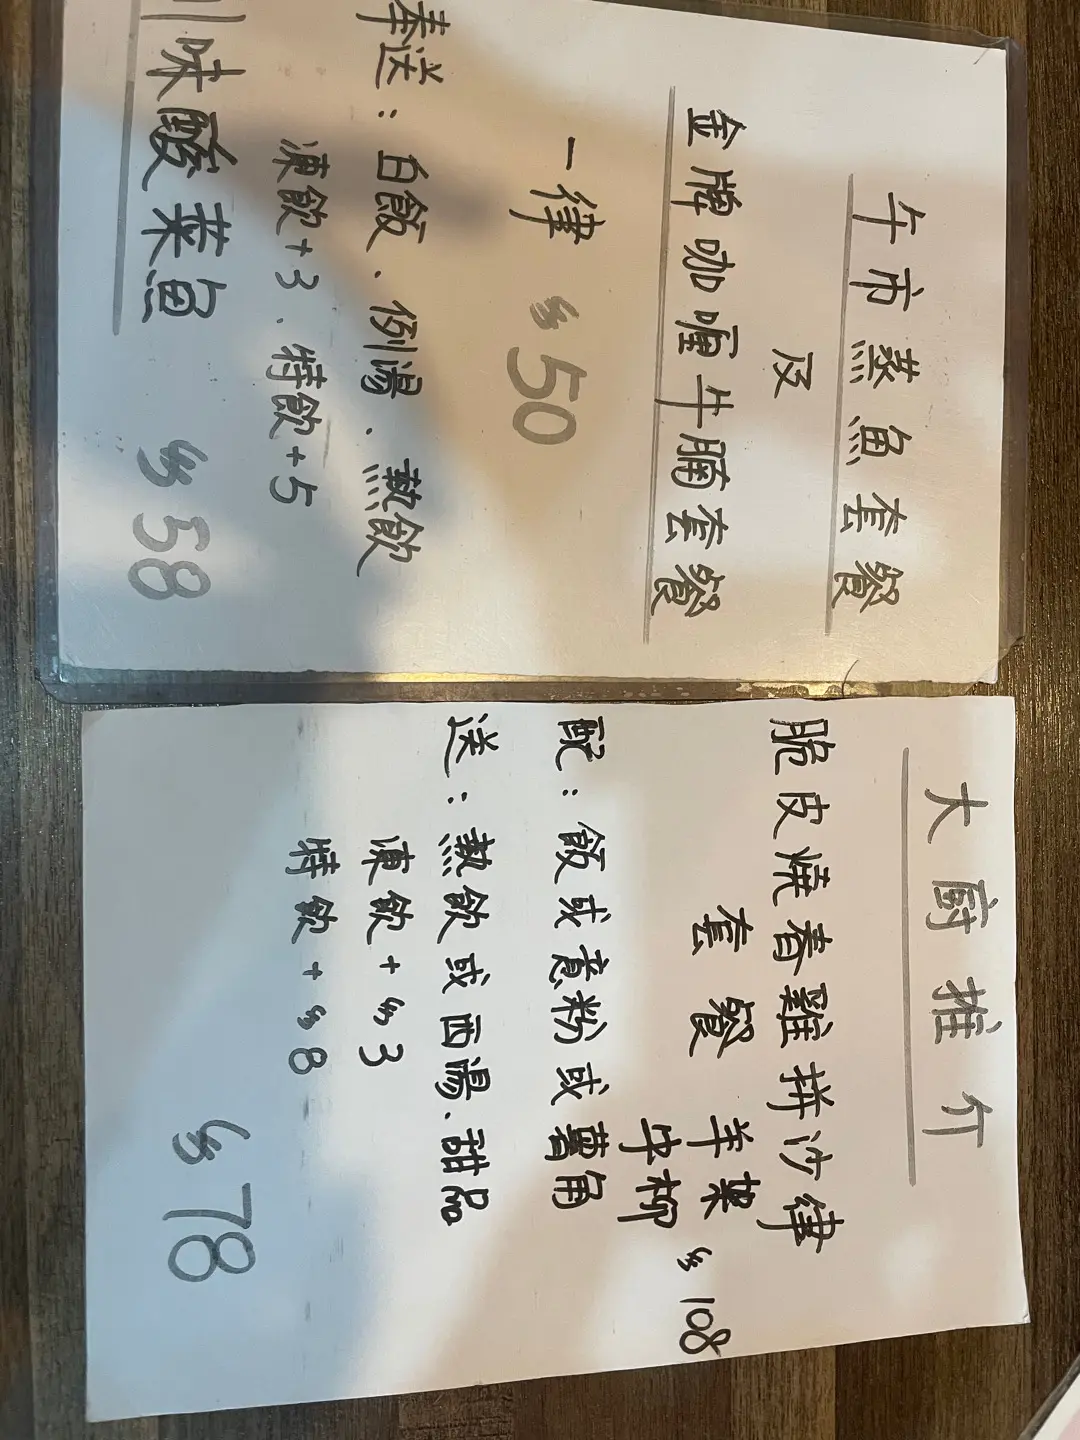 午市蒸魚套餐
及
金牌咖喱牛腩套餐
一律 $50
奉送：白飯、例湯、熱飲
凍飲+3、特飲+5
川味酸菜魚 $58
大廚推介
脆皮燒春雞拼沙律
套餐 羊架 $108
牛柳
配：飯或意粉或薯角
送：熱飲或西湯、甜品
凍飲+$3
特飲+$8
$78